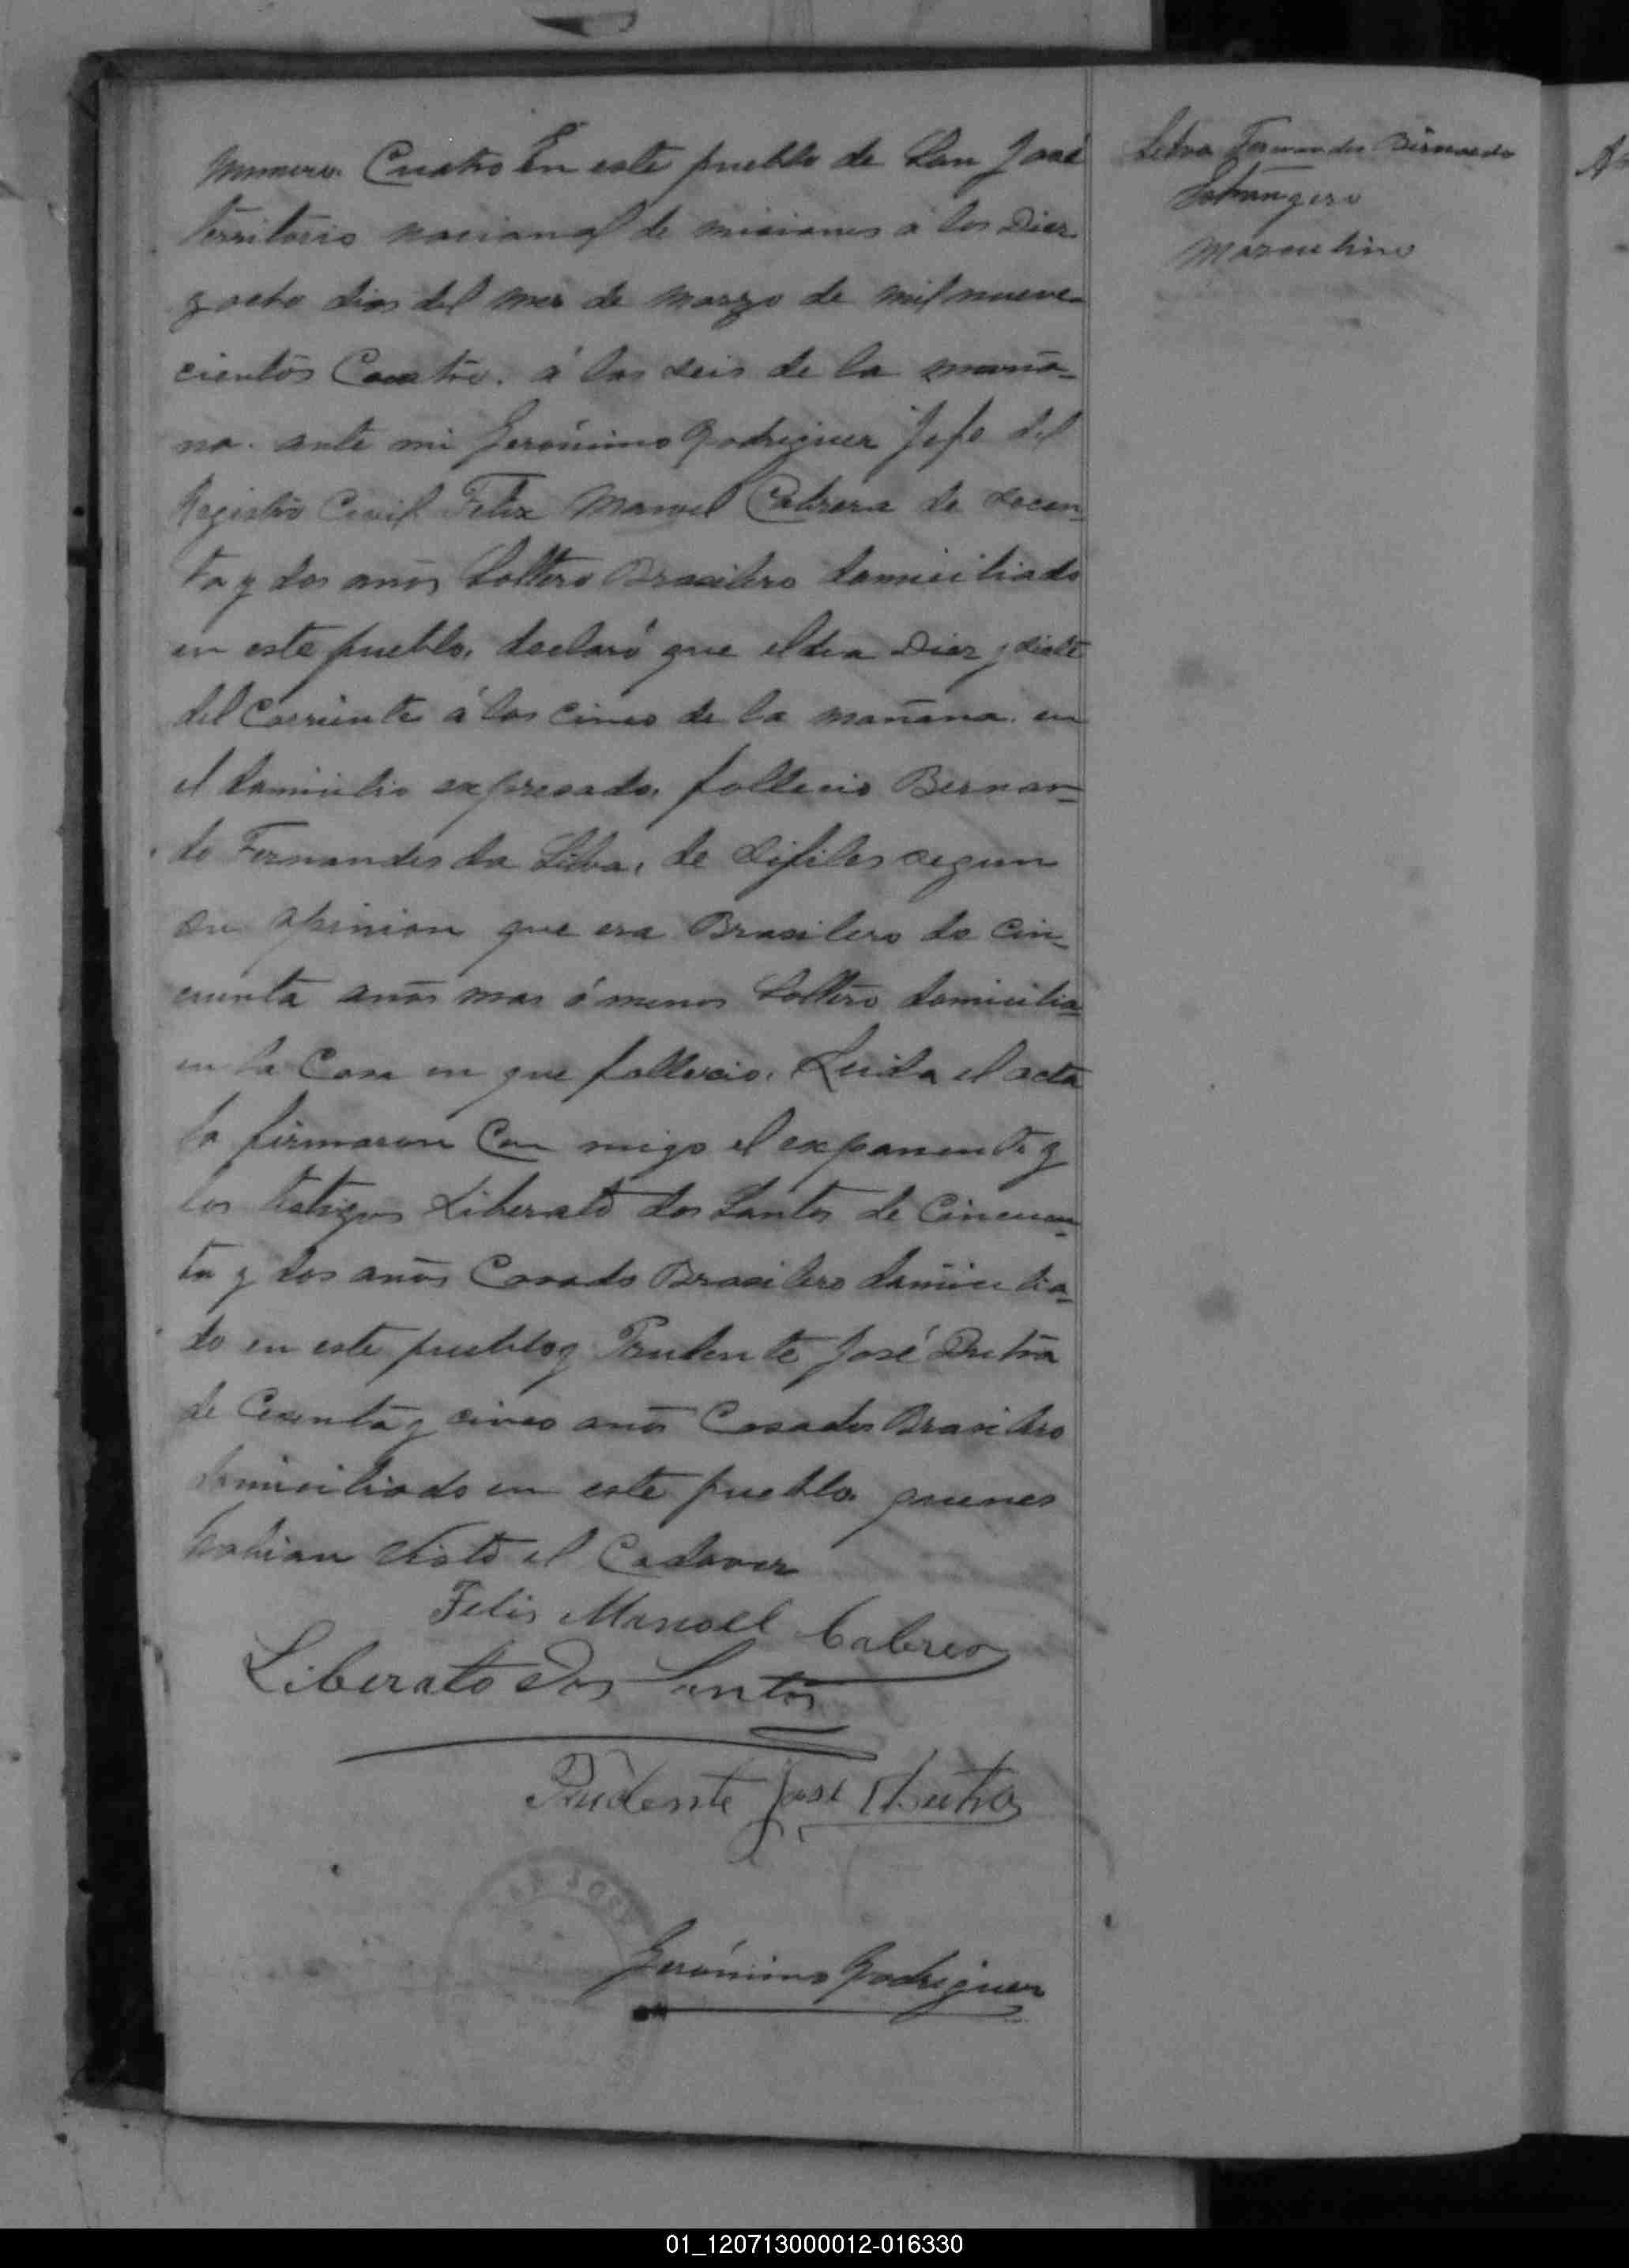 Numero Cuatro En este pueblo de San José
territorio nacional de misiones á los Diez
y ocho dias del mes de marzo de mil nueve-
cientos Cuatro. á las seis de la maña-
na. ante mi Gerónimo Rodriguez Jefe del
Registro Civil Felix Manuel Cabrera de secen-
ta y dos años Soltero Brasilero domiciliado
en este pueblo, declaró que el dia Diez y siete
del corriente á las cinco de la mañana. en
el domicilio expresado, fallecio Bernar-
do Fernandes da Silva, de Sifiles segun
su opinion que era Brasilero de cin-
cuenta años mas ó menos Soltero domicilia-
en la Casa en que fallecio. Leida el acta
la firmaron Con migo el exponente y
los testigos Liberato dos Santos de Cincuen-
ta y dos años Casado Brasilero domicilia-
do en este pueblo y Prudente José Dutra
de Cecenta y cinco años Casado Brasilero
domiciliado en este pueblo. quienes
habian visto el Cadaver
Felis Manoel Cabrera
Liberato Dos Santos
Prudente José Dutra
Gerónimo Rodriguez
Silva Fernandes Bernardo
Estrangero
Masculino
SAN JOSE
01_120713000012-016330